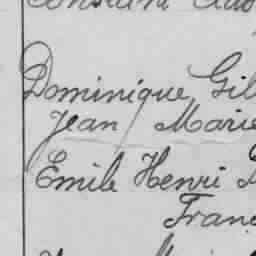 Dominique Gil
Jean Marie
Emile Henri
Franc